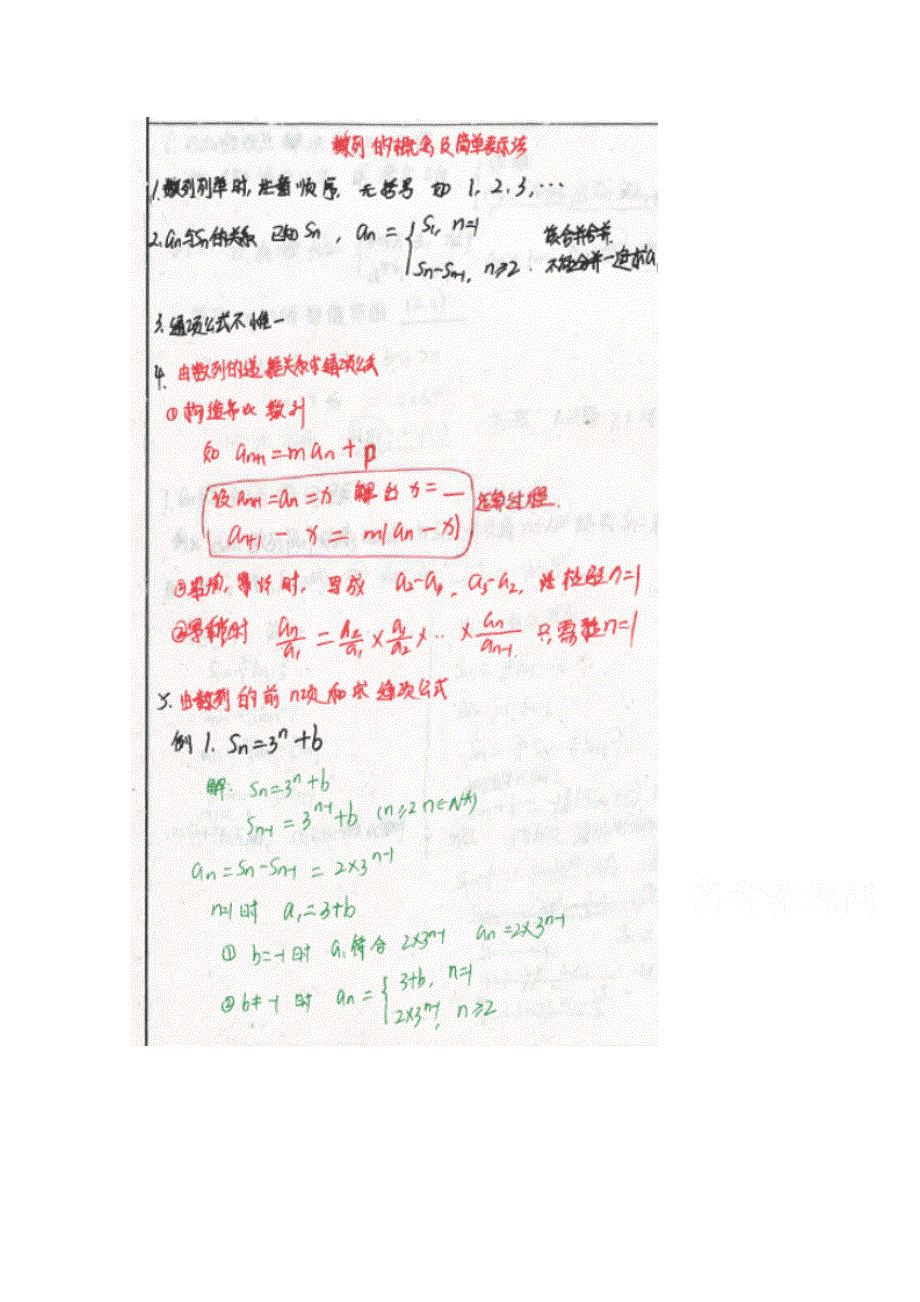 数列的概念及简单表示法
1.数列列举时,注重顺序,无括号 如 1,2,3,…
2.an与Sn的关系 已知Sn, an={S1, n=1 能合并合并.
Sn-Sn-1, n≥2. 不能合并一定求a
3.通项公式不惟一
4.由数列的递推关系求通项公式
①构造等比数列
如 an+1=man+p
设an+1=an=x 解出x=__
an+1-x=m(an-x)
时, 写成 a2-a1, a3-a2, 检验n=1
时 an/a1=a2/a1×a3/a2×…×an/an-1 只需 n=1
5.由数列的前n项和求通项公式
例1. Sn=3^n+b
解: Sn=3^n+b
Sn-1=3^n-1+b (n≥2 n∈N*)
an=Sn-Sn-1=2×3^n-1
n=1时 a1=3+b
① b=-1时 a1符合 2×3^n-1 an=2×3^n-1
② b≠-1时 an={3+b, n=1
2×3^n-1, n≥2
高考资源网